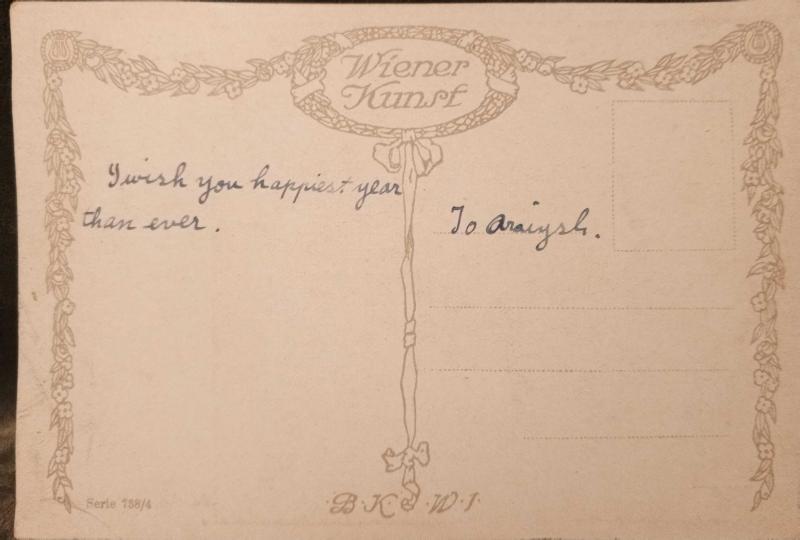 Wiener
Kunst
I wish you happiest year
than ever.
To Araiysh.
Serie 738/4
B.K.W.I.